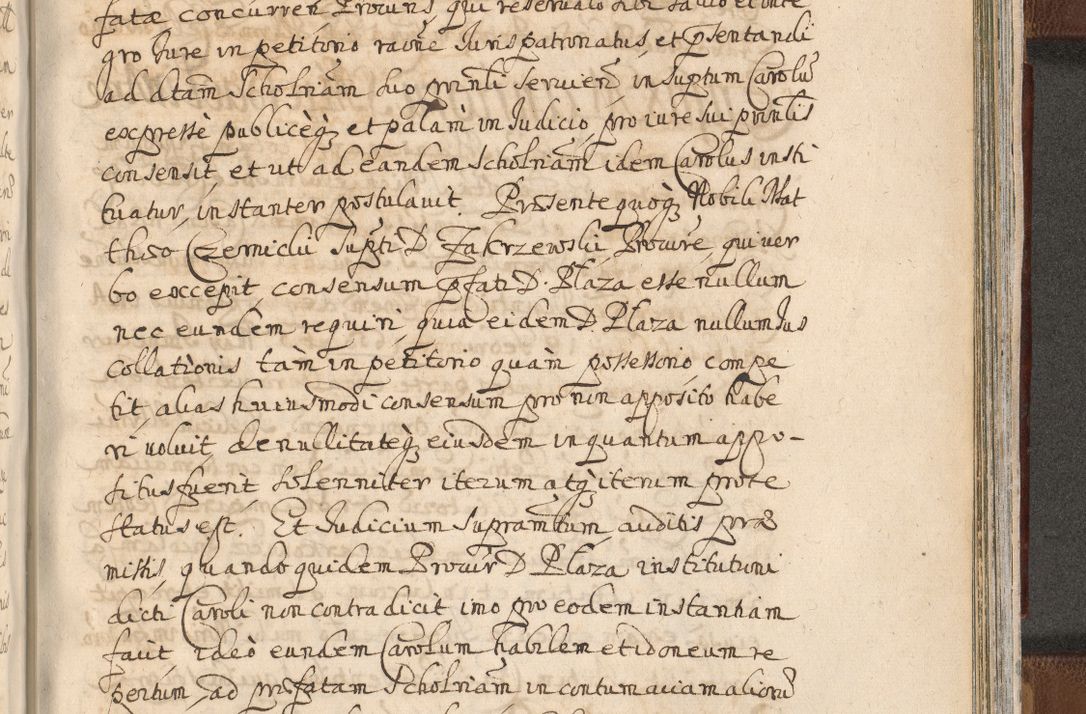 fatæ concurren Procuris qui reservato sibi salvo et inte
gro Jure in petitorio raone Jurispatronatus, et psentandi
ad dtam Scholriam suo prinli servien in suptum Carolu
expresse publiceq et palam in Judicio pro iure sui prinlis
consensit, et ut ad eandem Scholriam idem Carolus insti
tuatur, instanter postulavit. Præsente quoq Nobili Mat
thæo Czernicki Supti D. Zakrzewski Procure, qui ver
bo excepit, consensum pfati D. Plaza esse nullum
nec eundem requiri, quia eidem D. Plaza nullum Jus
collationis tam in petitorio quam possessorio compe
tit, alias huiusmodi consensum pro non apposito habe
ri voluit, de nullitateq eiusdem in quantum appo-
situs fuerit solenniter iterum atq iterum prote
status est. Et Judicium supramtum, auditis præ
missis, quandoquidem Procur D. Plaza institutioni
dicti Caroli non contradicit imo pro eodem instantiam
facit, ideo eundem Carolum habilem et idoneum re
pertum, ad præfatam Scholriam in contumaciam alioru